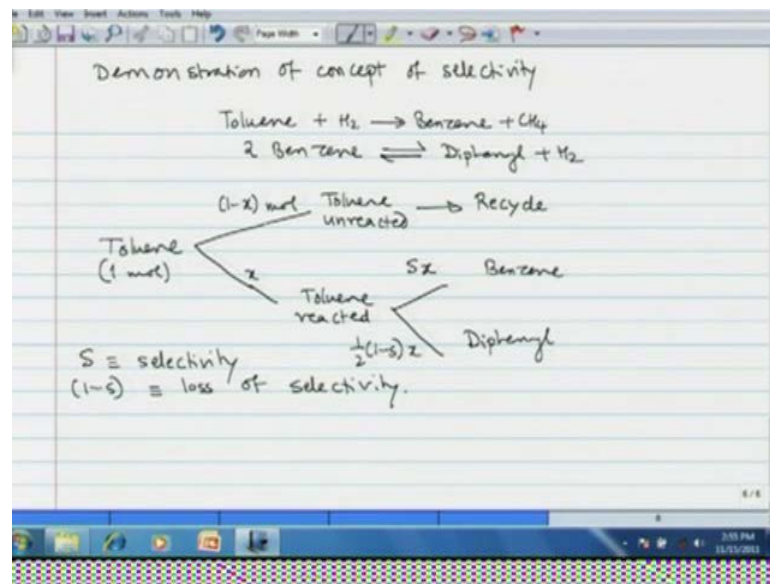 Edit View Insert Actions Tools Help
Page Width
Demonstration of concept of selectivity
Toluene + H2 → Benzene + CH4
2 Benzene ⇌ Diphenyl + H2
(1-x) mol Toluene unreacted → Recycle
Toluene
(1 mol)
x
Toluene
reacted
Sx Benzene
1/2(1-s)x Diphenyl
S ≡ selectivity
(1-s) ≡ loss of selectivity.
6/6
6
2:55 PM
11/15/2011